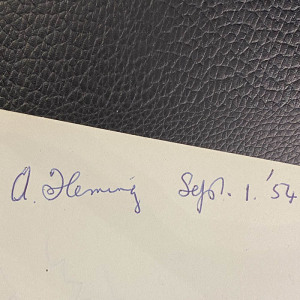 A. Fleming Sept. 1. '54